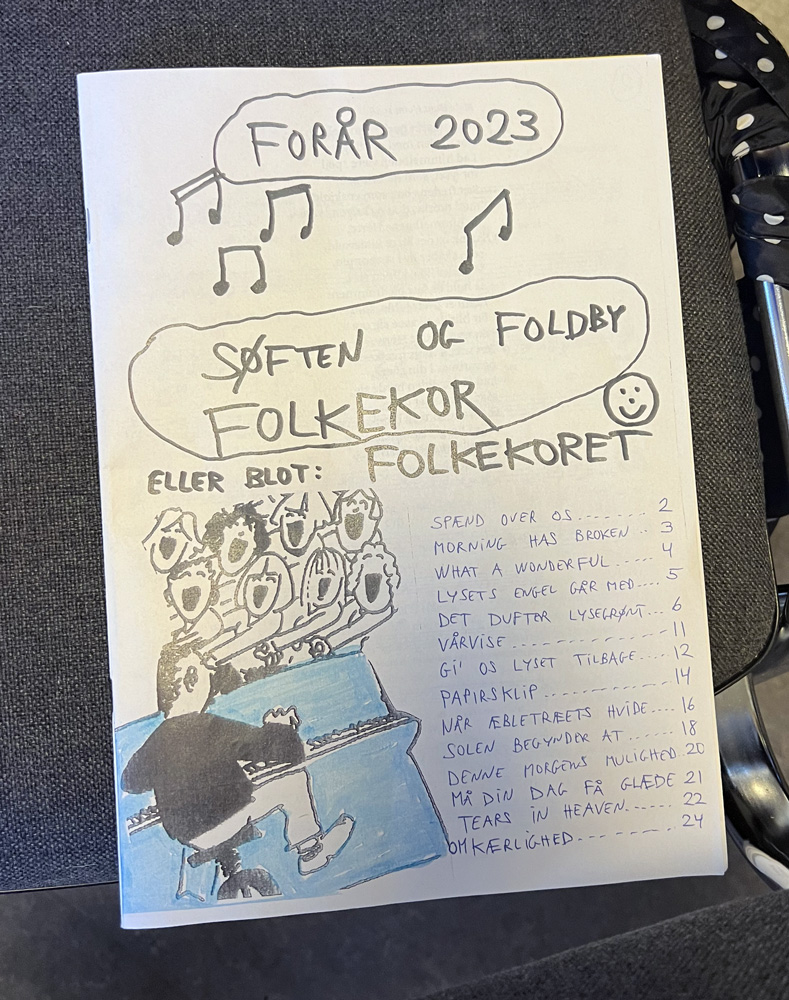 FORÅR 2023
SØFTEN OG FOLDBY
FOLKEKOR
ELLER BLOT: FOLKEKORET
SPÆND OVER OS........ 2
MORNING HAS BROKEN .. 3
WHAT A WONDERFUL ..... 4
LYSETS ENGEL GÅR MED.... 5
DET DUFTER LYSEGRØNT... 6
VÅRVISE.............. 11
GI' OS LYSET TILBAGE..... 12
PAPIRSKLIP............ 14
NÅR ÆBLETRÆETS HVIDE.... 16
SOLEN BEGYNDER AT ...... 18
DENNE MORGENS MULIGHED..20
MÅ DIN DAG FÅ GLÆDE 21
TEARS IN HEAVEN...... 22
OM KÆRLIGHED......... 24